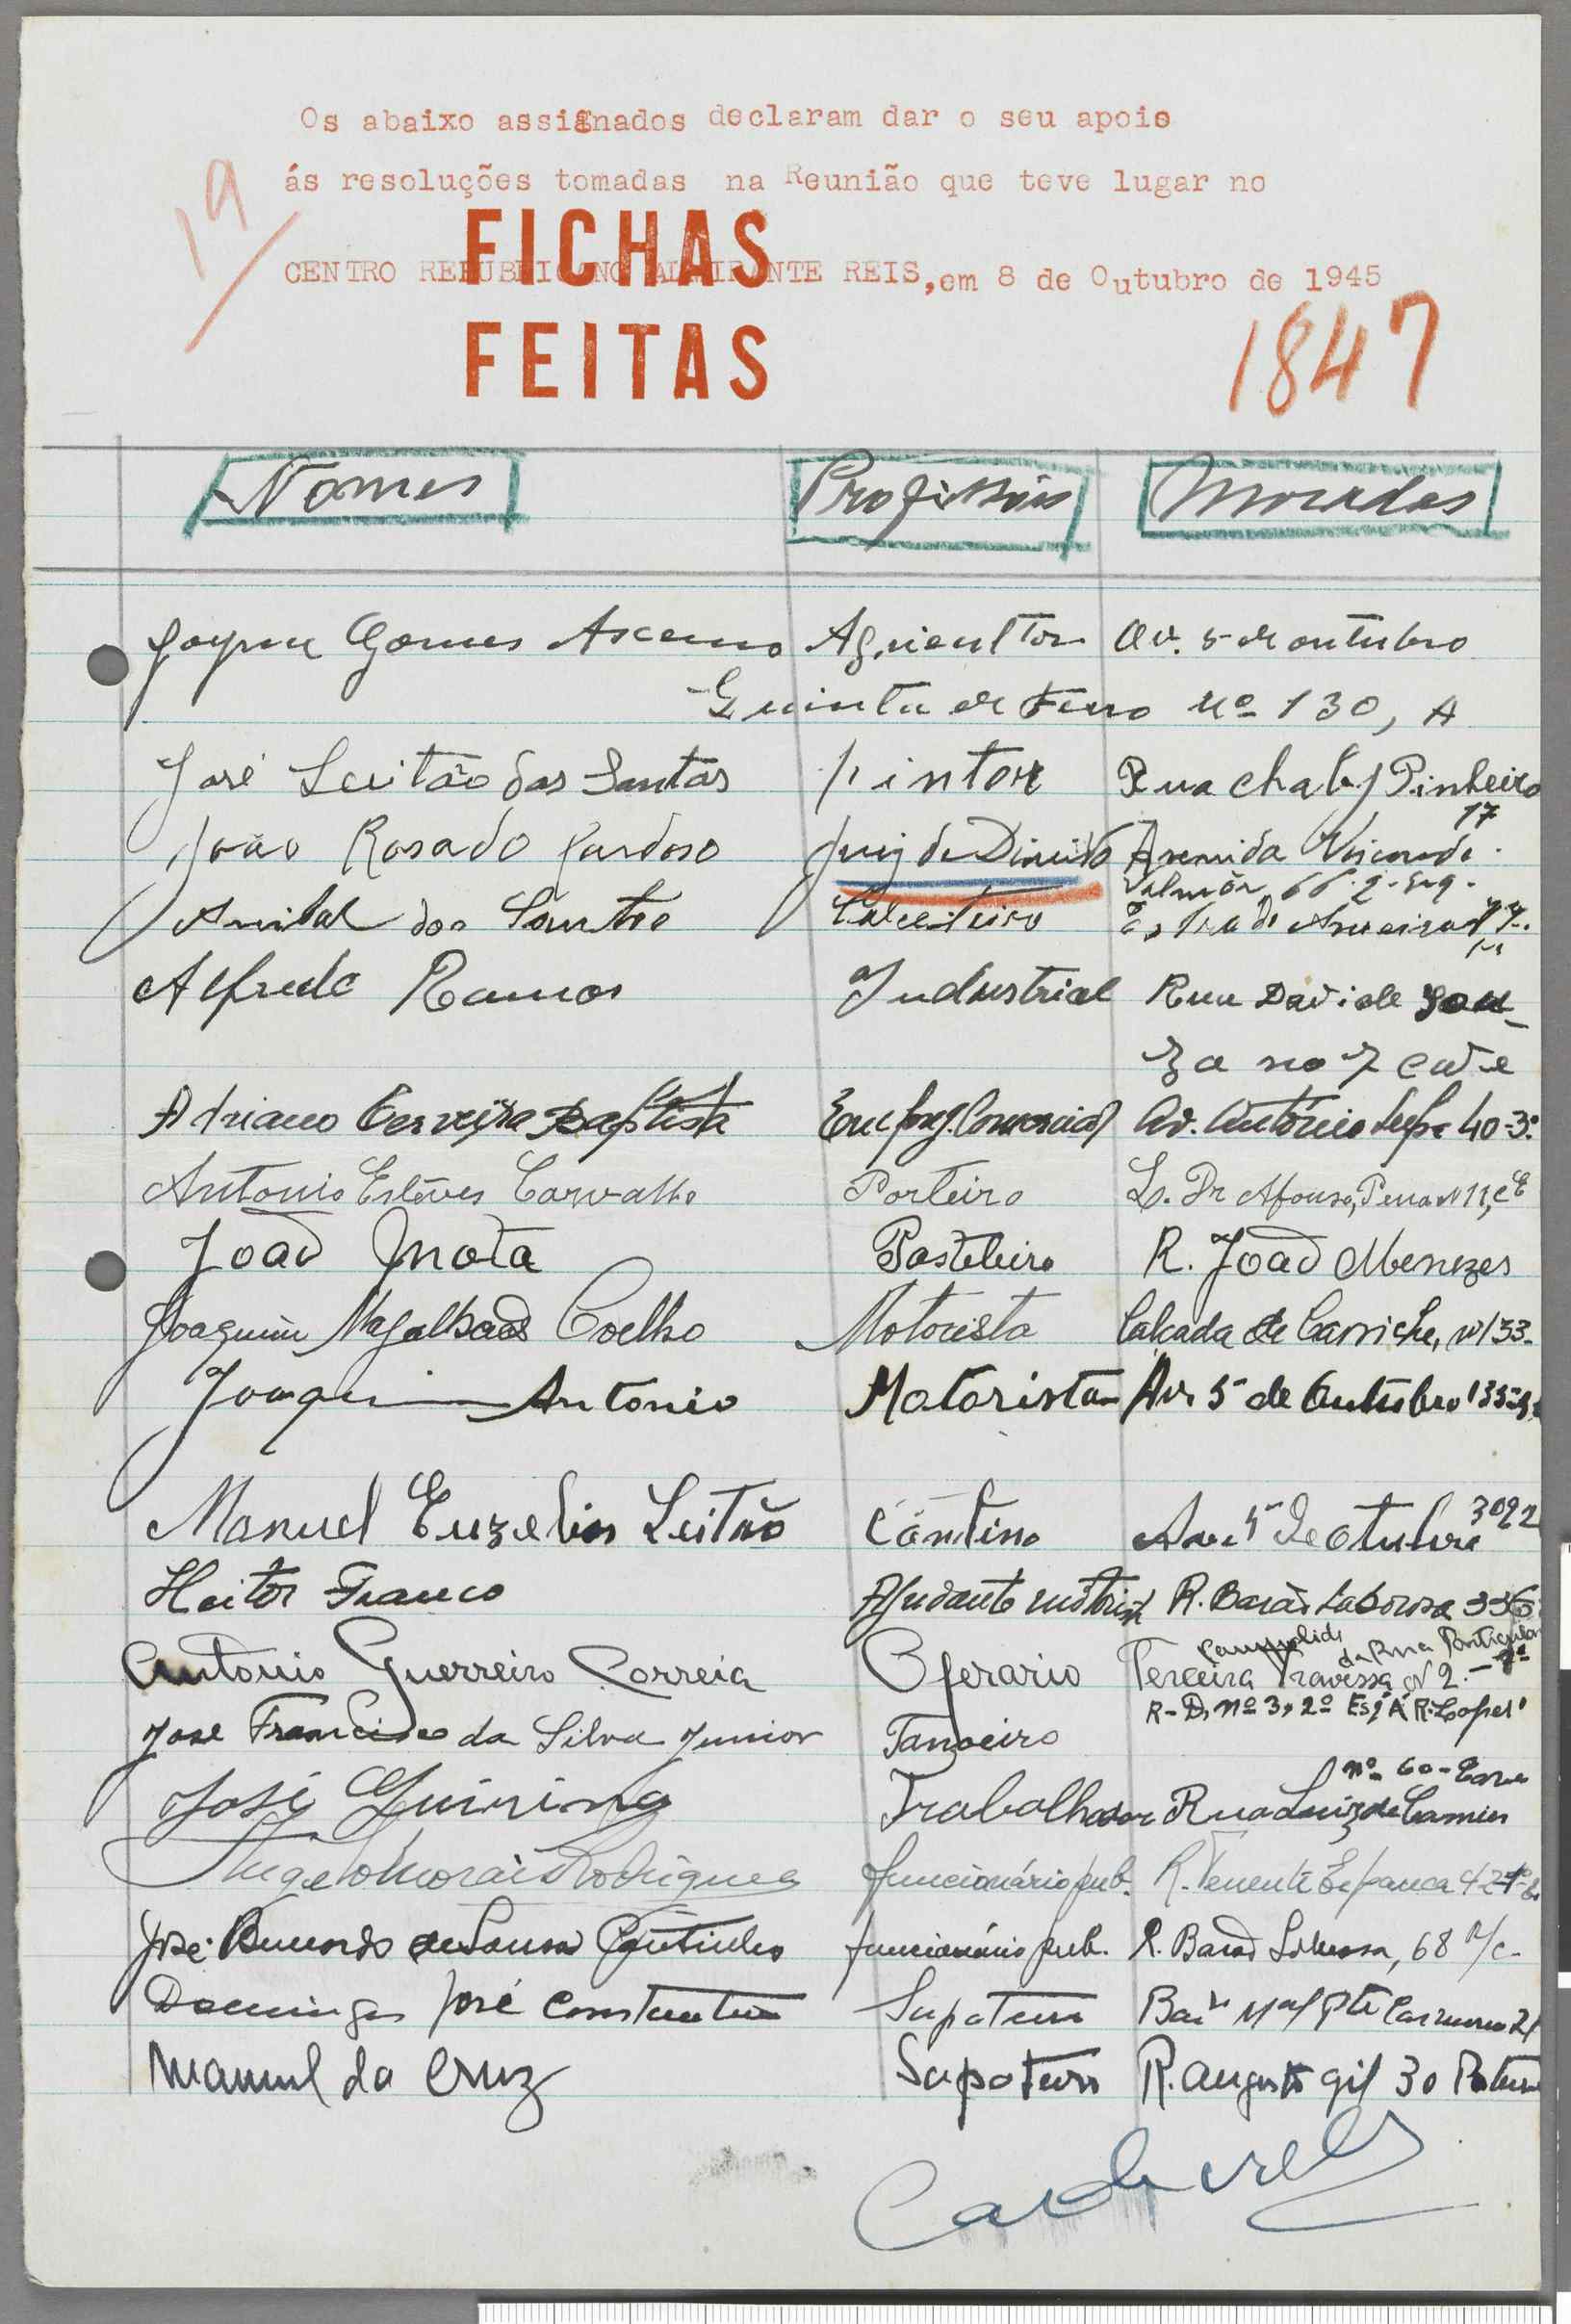 Os abaixo assignados declaram dar o seu apoio
ás resoluções tomadas na Reunião que teve lugar no
CENTRO REPUBLICANO ALMIRANTE REIS, em 8 de Outubro de 1945
19
FICHAS
FEITAS
1847
Nomes Profissões Moradas
Gomes Agricultor Av. 5 de outubro
Quinta de nº 130, A
José Leitão dos Santos pintor Rua Chaby Pinheiro
17
João Rosado Cardoso Juiz de Direito Avenida Visconde
Valmôr, 66-2-Esq.
Anibal dos Santos Calceteiro Estrada
Alfredo Ramos Industrial Rua Davi de Sou-
za no 7 cave
Adriano Cerveira Baptista Empreg. Comercial Av. António Serpa 40-3º
Antonio Estêves Carvalho Porteiro L. Dr Afonso, Pena N 11, c E
João Mota Pasteleiro R. João Menezes
Joaquim Magalhães Coelho Motorista Calçada de Carriche, nº 133-
Joaquim Antonio Motorista Av. 5 de Outubro 135
Manuel Euzebio Leitão Av. 5 de Otubro
Heitor Franco Ajudante motorista R. Barão Saborosa 336
Campolide da Rua Particular
Antonio Guerreiro Correia Operario Terceira Travessa N 2. -
R-D, nº 3, 2º Esq Á R. Lopes
Jose Francisco da Silva Junior Tanoeiro
nº 60-
José Trabalhador Rua Luiz de Camões
Angelo Morais Rodrigues funcionário pub. R. Tenente Espanca
José de Sousa Coutinho funcionário pub. R. Barão Sabrosa, 68 R/c-
Domingos José Sapateiro Carmona 21
Manuel da Cruz Sapateiro R. Augusto Gil 30